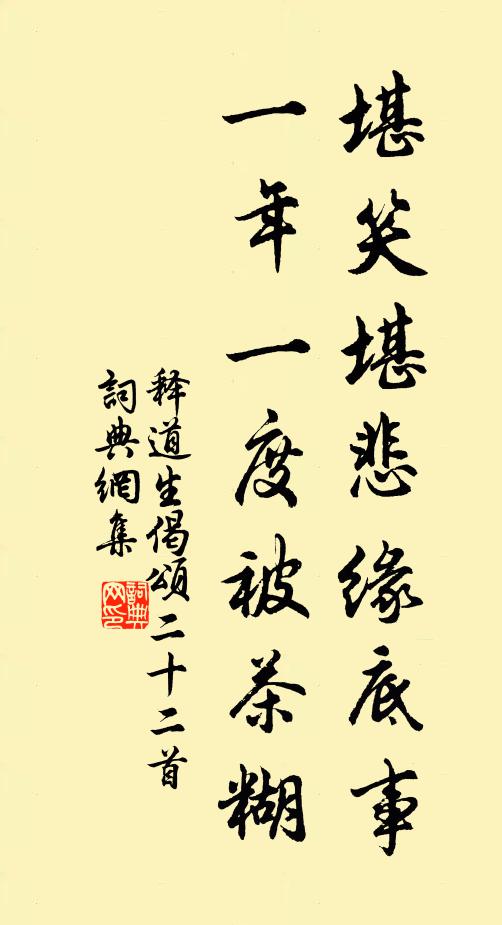 堪笑堪悲缘底事
一年一度被茶糊
释道生偈頌二十二首
詞典網集
詞典
网印